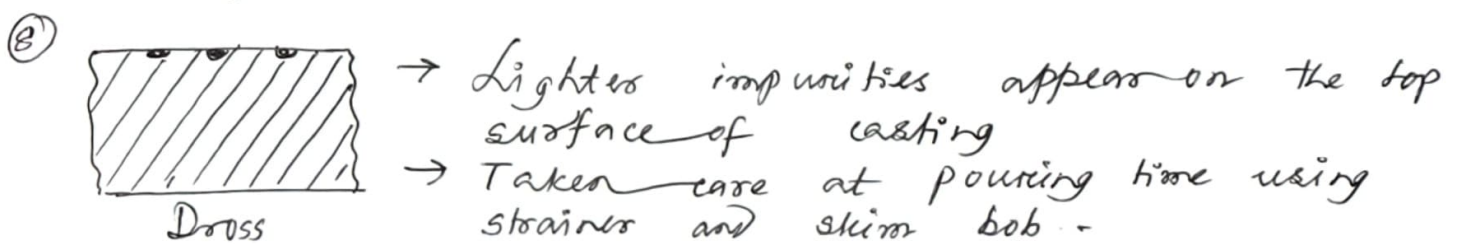 ⑧
→ Lighter impurities appear on the top
surface of casting
→ Taken care at pouring time using
strainer and skim bob.
Dross